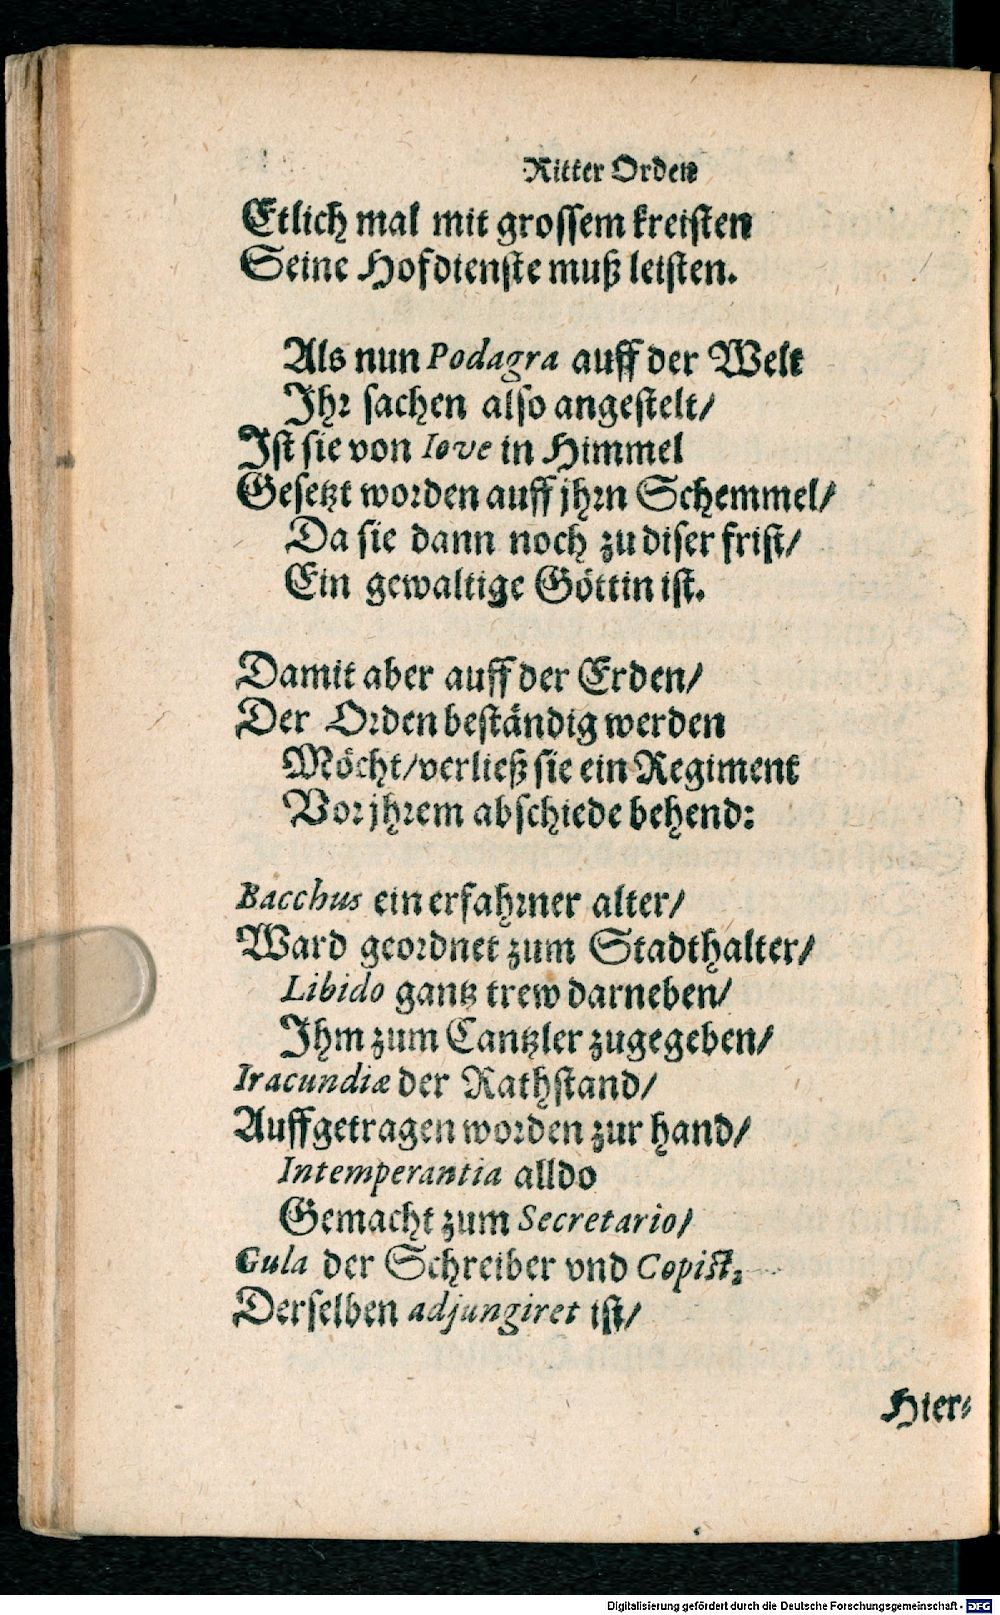 Ritter Orden
Etlich mal mit grossem kreisten
Seine Hofdienste muß leisten.
Als nun Podagra auff der Welt
Ihr sachen also angestelt/
Ist sie von Iove in Himmel
Gesetzt worden auff jhrn Schemmel/
Da sie dann noch zu diser frist/
Ein gewaltige Göttin ist.
Damit aber auff der Erden/
Der Orden beständig werden
Möcht/verließ sie ein Regiment
Vor jhrem abschiede behend:
Bacchus ein erfahrner alter/
Ward geordnet zum Stadthalter/
Libido gantz trew darneben/
Ihm zum Cantzler zugegeben/
Iracundiæ der Rathstand/
Auffgetragen worden zur hand/
Intemperantia alldo
Gemacht zum Secretario/
Gula der Schreiber vnd Copist,
Derselben adjungiret ist/
Hier-
Digitalisierung gefördert durch die Deutsche Forschungsgemeinschaft - DFG